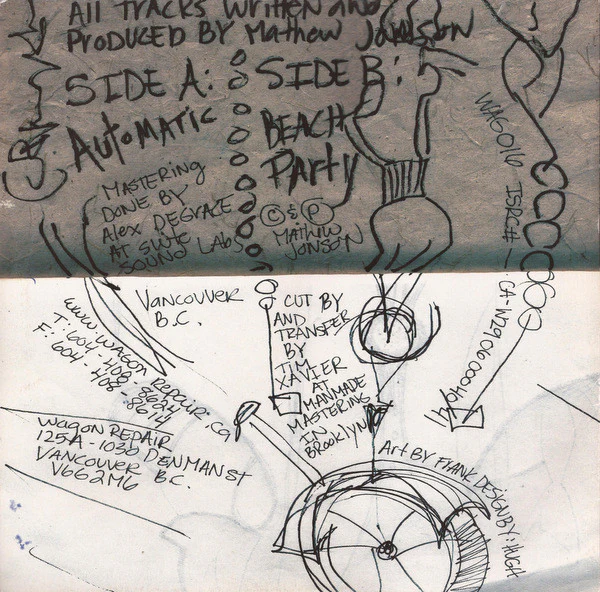 All Tracks Written and
Produced By Mathew Jonson
SIDE A:
Automatic
SIDE B:
BEACH
Party
© & ℗
Mathew
Jonson
MASTERING
DONE BY
Alex DEGRACE
AT SUITE
SOUND LABS
VANCOUVER
B.C.
WAG016 ISRC# —
CA-W29060004
CUT BY
AND
TRANSFER
BY
TIM
XAVIER
AT
MANMADE
MASTERING
IN
BROOKLYN
www.wagon repair.ca
T: 604-408-8624
F: 604-408-8614
Wagon REPAIR
125A-1030 DENMAN ST
VANCOUVER B.C.
V662M6
Art BY FRANK DESIGN BY: HUGH